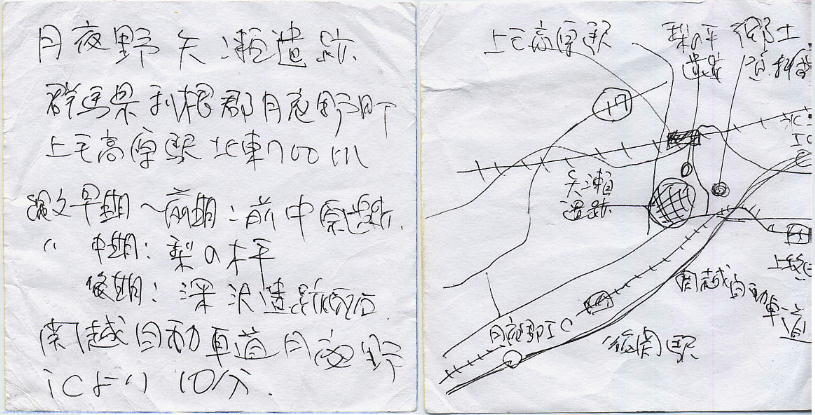 月夜野矢瀬遺跡
群馬県利根郡月夜野町
上毛高原駅北東700m
縄文早期〜前期:前中原遺跡
〃 中期:梨の木平
後期:深沢遺跡
関越自動車道月夜野
ICより10分.
上毛高原駅
梨の平
遺跡
郷土
17
IC
矢瀬
遺跡
関越自動車道
月夜野IC
後閑駅